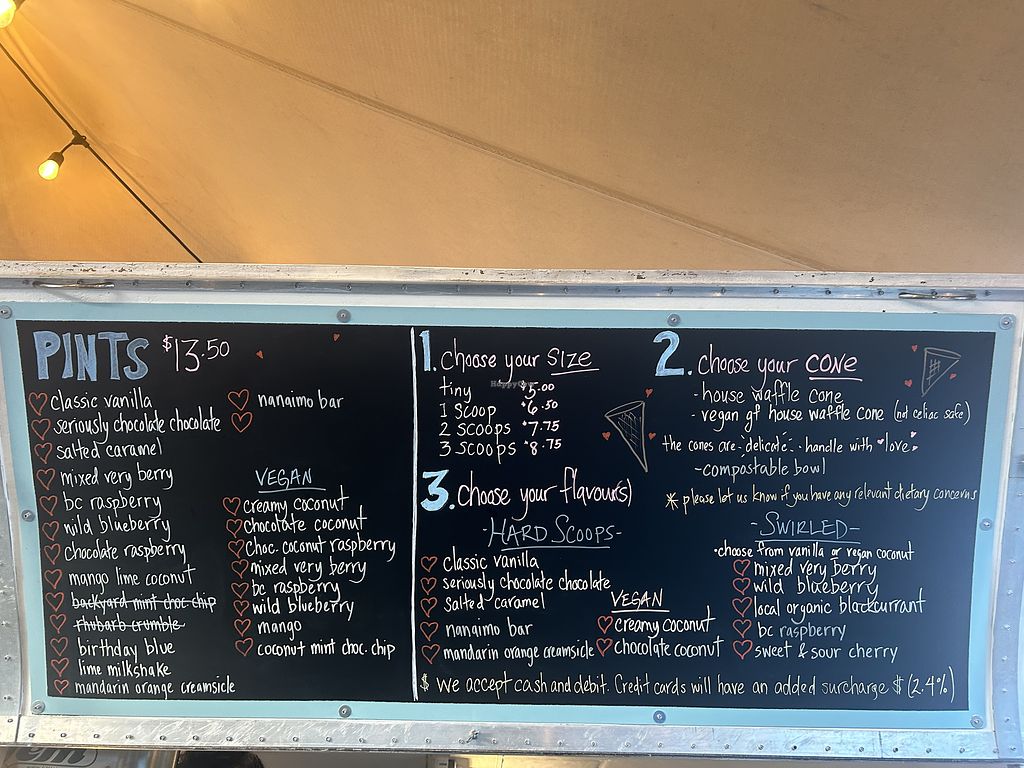 PINTS $13.50
classic vanilla
seriously chocolate chocolate
salted caramel
mixed very berry
bc raspberry
wild blueberry
chocolate raspberry
mango lime coconut
backyard mint choc chip
rhubarb crumble
birthday blue
lime milkshake
mandarin orange creamsicle
nanaimo bar
VEGAN
creamy coconut
chocolate coconut
choc. coconut raspberry
mixed very berry
bc raspberry
wild blueberry
mango
coconut mint choc. chip
1. choose your SIZE
tiny $5.00
1 Scoop $6.50
2 SCOOPS $7.75
3 SCOOPS $8.75
HappyCow
2. choose your CONE
- house waffle cone
- vegan gf house waffle cone (not celiac safe)
the cones are delicate - handle with love
- compostable bowl
* please let us know if you have any relevant dietary concerns
3. choose your flavour(s)
- HARD SCOOPS -
classic vanilla
seriously chocolate chocolate
salted caramel
nanaimo bar
mandarin orange creamsicle
VEGAN
creamy coconut
chocolate coconut
- SWIRLED -
• choose from vanilla or vegan coconut
mixed very berry
wild blueberry
local organic blackcurrant
bc raspberry
sweet & sour cherry
$ we accept cash and debit. Credit cards will have an added surcharge $ (2.4%)